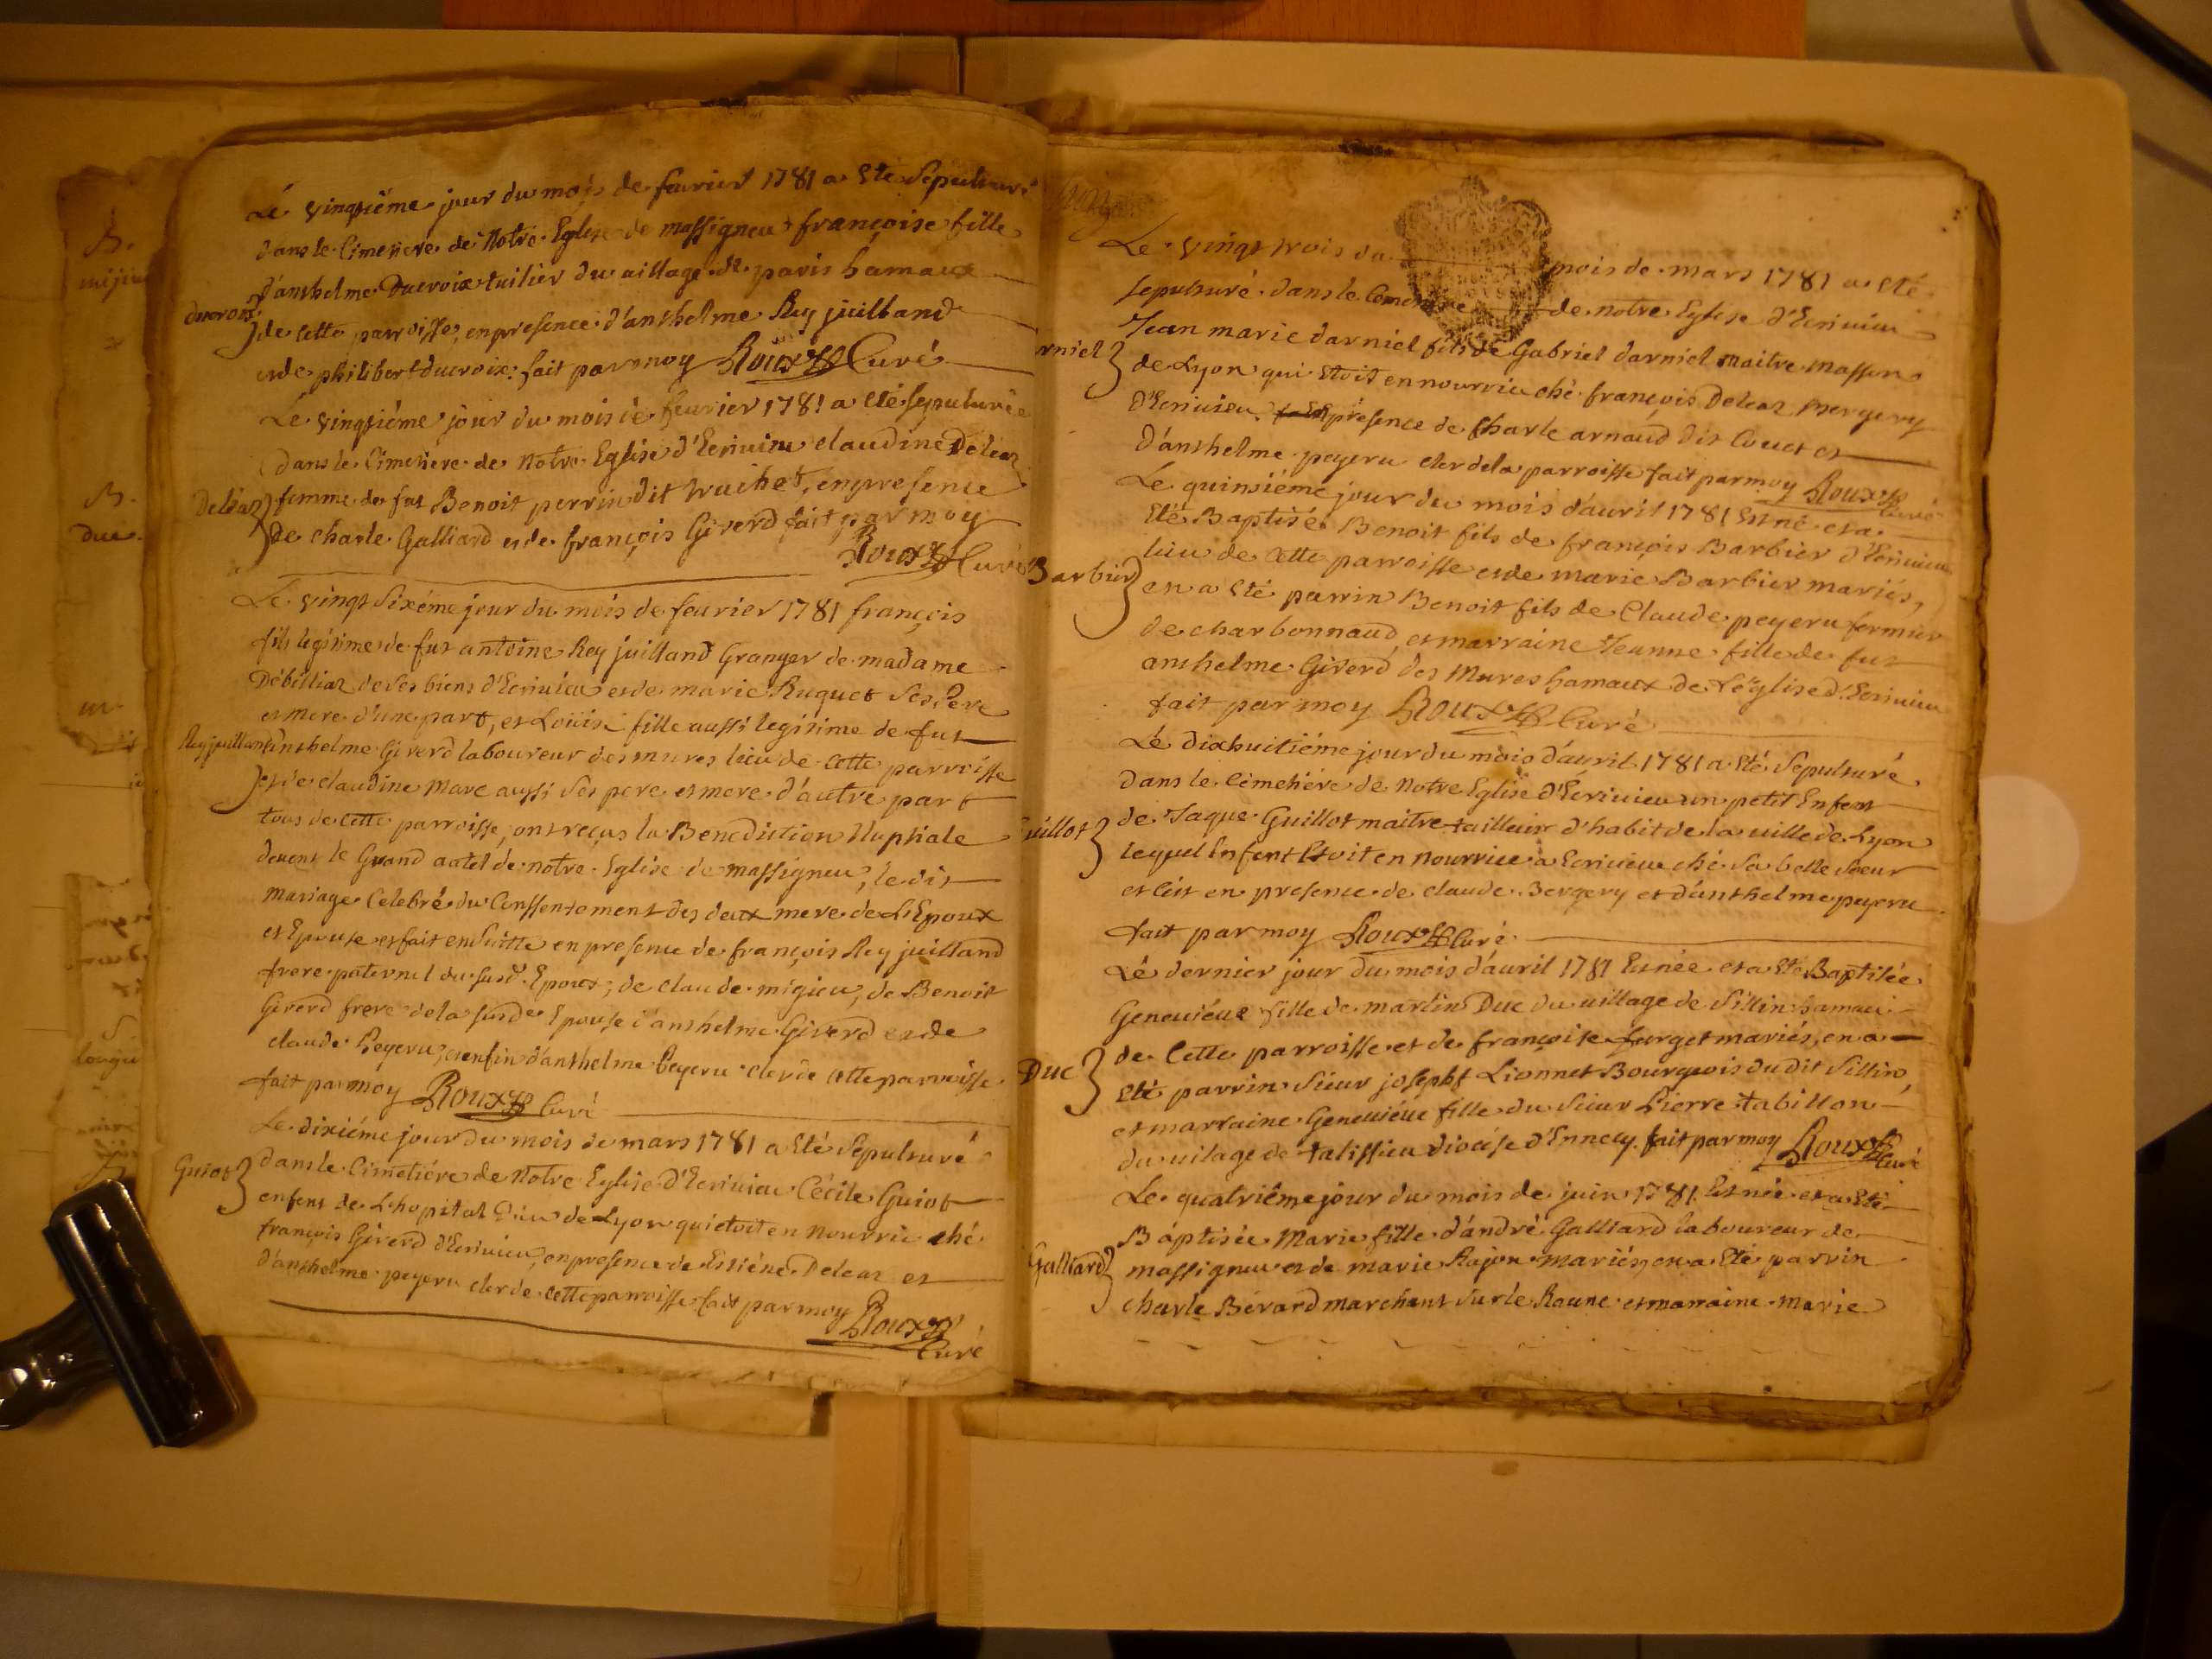 Le vingtiéme jour du mois de feurier 1781 a Eté Sepulturé
dans le Cimetiere de Notre Eglise de massigneu françoise fille
d'anthelme Ducroix tuilier du uillage de paris hamaux
ducroix
de cette parroisse, en presence d'anthelme Rey juilland
et de philibert ducroix: fait par moy Roux Curé
Le vingtiéme jour du mois de feurier 1781 a eté sepulturée
dans le Cimetiere de Notre Eglise d'Ecriuieu claudine Deleaz
Deleaz
femme de fut Benoit perrin dit truchet, en presence
de charle Galliard et de françois Giverd fait par moy
Roux Curé
Le vingt Sixéme jour du mois de feurier 1781 françois
fils legitime de fut antoine Rey juilland Granger de madame
Débélliaz de Ses biens d'Ecriuieu et de marie Ruquet Ses Pere
et mere d'une part, et Loüise fille aussi legitime de fut
Rey juilland
anthelme Giverd laboureur des mures lieu de cette parroisse
et de claudine Marc aussi Ses pere et mere d'autre part
tous de cette parroisse, ont reçus la Benediction Nuptiale
deuent le Grand autel de notre Eglise de massigneu, le dit
mariage Celebré du Conssentement des deux mere de L'Epoux
et Epouse et fait en Suitte en presence de françois Rey juilland
frere paternel du susd. Epoux, de claude migieu, de Benoit
Giverd frere de la susde Epouse d'anthelme Giverd et de
claude Peyeru, et enfin d'anthelme Peyeru cler de cette parroisse
fait par moy Roux Curé
Le dixiéme jour du mois de mars 1781 a Eté Sepulturé
Guiot
dans le Cimetiére de Notre Eglise d'Ecriuieu Cécile Guiot
enfent de L'hopital Dieu de Lyon qui etoit en Nourrice ché
françois Giverd d'Ecriuieu, en presence de Estiéne Deleaz et
d'anthelme peyeru cler de cette parroisse fait par moy Roux
Curé
Le vingt trois du mois de mars 1781 a eté
sepulturé dans le Cimetiere de notre Eglise d'Ecriuieu
Jean marie darniel fils de Gabriel darniel maitre masson
rniel
de Lyon qui Etoit en nourrice ché françois Deleaz Mergery
d'Ecriuieu En présence de Charle arnaud dit Couet et
d'anthelme peyeru cler de la parroisse fait par moy Roux
Curé
Le quinsiéme jour du mois d'auril 1781 Est né et a
Eté Baptisé Benoit fils de françois Barbier d'Ecriuieu
lieu de cette parroisse et de marie Barbier mariés,
Barbier
en a eté parrin Benoit fils de Claude peyeru fermier
de charbonnaud, et marraine Jeanne fille de fut
anthelme Giverd des Mures hamaux de L'église d'Ecriuieu
fait par moy Roux Curé
Lé dixhuitiéme jour du mois d'auril 1781 a Eté Sepulturé
dans le Cimetiére de Notre Eglise d'Ecriuieu un petit Enfent
uillot
de Jaque Guillot maitre tailleur d'habit de la uille de Lyon
lequel Enfent Etoit en nourrice a Ecriuieu ché Sa belle Soeur
et Cest en presence de claude Bergery et d'anthelme peyeru
fait par moy Roux Curé
Lé dernier jour du mois d'auril 1781 Est née et a Eté Baptisée
Geneuiéue fille de martin Duc du uillage de Sillin hamau
Duc
de Cette parroisse et de françoise forget mariés, en a
Eté parrin Sieur josepht Lionnet Bourgeois du dit Sillin,
et marraine Geneuiéue fille du Sieur Pierre tabillon
du uilage de talissieu diocése d'Ennecy. fait par moy Roux
Curé
Le quatriéme jour du mois de juin 1781 Est née et a Eté
Baptisée Marie fille d'andré Galliard laboureur de
Galliard
massigneu et de marie Rajon mariés, en a Eté parrin
charle Bérard marchent Sur le Raune et marraine marie